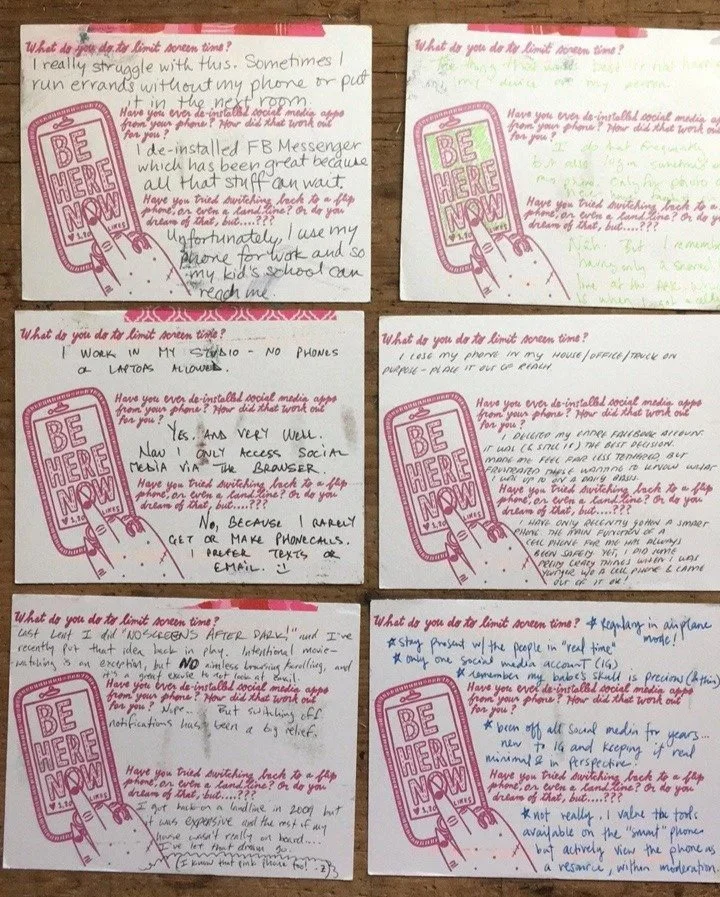 What do you do to limit screen time?
I really struggle with this. Sometimes I
run errands without my phone or put
it in the next room.
Have you ever de-installed social media apps
from your phone? How did that work out
for you?
I de-installed FB Messenger
which has been great because
all that stuff can wait.
Have you tried switching back to a flip
phone, or even a land line? Or do you
dream of that, but.....???
Unfortunately, I use my
phone for work and so
my kid's school can
reach me.
BE
HERE
NOW
LIKES
What do you do to limit screen time?
my device on my person
Have you ever de-installed social media
from your phone? How did that work
for you?
I do that frequently
but also log in
my phone. Only for photo
Have you tried switching back to a
phone, or even a land line? Or do y
dream of that, but.....???
Nah. But I remember
having only a shared
line at the
is when
BE
HERE
NOW
LIKES
What do you do to limit screen time?
I WORK IN MY STUDIO - NO PHONES
OR LAPTOPS ALLOWED.
Have you ever de-installed social media apps
from your phone? How did that work out
for you?
YES. AND VERY WELL.
NOW I ONLY ACCESS SOCIAL
MEDIA VIA THE BROWSER.
Have you tried switching back to a flip
phone, or even a land line? Or do you
dream of that, but.....???
NO, BECAUSE I RARELY
GET OR MAKE PHONECALLS.
I PREFER TEXTS OR
EMAIL. :)
BE
HERE
NOW
LIKES
What do you do to limit screen time?
I LOSE MY PHONE IN MY HOUSE/OFFICE/TRUCK ON
PURPOSE - PLACE IT OUT OF REACH
Have you ever de-installed social media apps
from your phone? How did that work out
for you?
I DELETED MY ENTIRE FACEBOOK ACCOUNT.
IT WAS (& STILL IS) THE BEST DECISION.
MADE ME FEEL FAR LESS TETHERED, BUT
FRUSTRATED THOSE WANTING TO KNOW WHAT
I WAS UP TO ON A DAILY BASIS.
Have you tried switching back to a flip
phone, or even a land line? Or do you
dream of that, but.....???
I HAVE ONLY RECENTLY GOTTEN A SMART
PHONE. THE MAIN FUNCTION OF A
CELL PHONE FOR ME HAS ALWAYS
BEEN SAFETY. YET, I DID SOME
PRETTY CRAZY THINGS WHEN I WAS
YOUNGER W/O A CELL PHONE & CAME
OUT OF IT OK!
BE
HERE
NOW
LIKES
What do you do to limit screen time?
Last Lent I did "NO SCREENS AFTER DARK!" and I've
recently put that idea back in play. Intentional movie-
watching is an exception, but NO aimless browsing/scrolling, and
it's a great excuse to not look at email.
Have you ever de-installed social media apps
from your phone? How did that work out
for you? Nope... But switching off
notifications has been a big relief.
Have you tried switching back to a flip
phone, or even a land line? Or do you
dream of that, but.....???
I got back on a landline in 2009 but
it was expensive and the rest of my
house wasn't really on board....
I've let that dream go.
(I knew that pink phone too!
BE
HERE
NOW
LIKES
What do you do to limit screen time? * Regularly in airplane
mode!
* stay present w/ the people in "real time"
* only one social media account (IG)
* remember my babe's skull is precious (& thin)
Have you ever de-installed social media apps
from your phone? How did that work out
for you?
* been off all social media for years...
new to IG and keeping it real
minimal & in perspective.
Have you tried switching back to a flip
phone, or even a land line? Or do you
dream of that, but.....???
* not really. I value the tools
available on the "smart" phones
but actively view the phone as
a resource, within moderation.
BE
HERE
NOW
LIKES